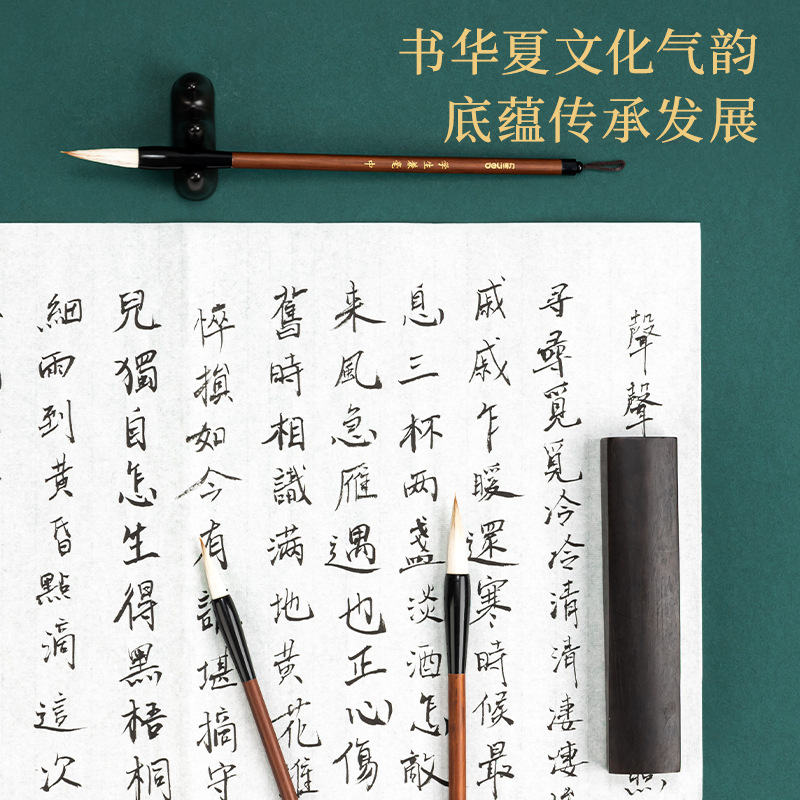 书华夏文化气韵
底蕴传承发展
学生兼毫 中
聲聲
寻尋覓覓冷冷清清凄凄
戚戚乍暖還寒時候最
息三杯两盞淡酒怎敵
来風急雁過也正心傷
舊時相識滿地黄花
悴損如今有 堪摘守
兒獨自怎生得黑梧桐
細雨到黄昏點滴這次